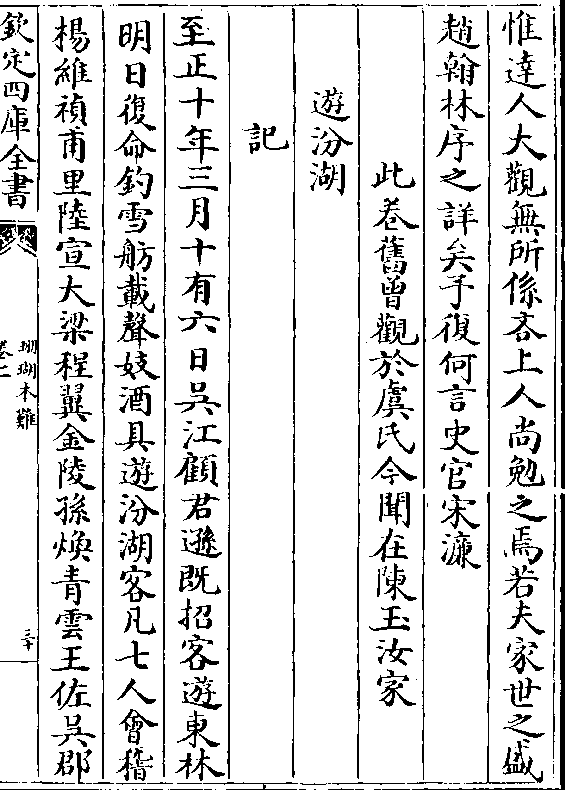 惟達人大觀無所係吝上人尚勉之焉若夫家世之盛
趙翰林序之詳矣予復何言史官宋濂
此卷舊曾觀於虞氏今聞在陳玉汝家
遊汾湖
記
至正十年三月十有六日吳江顧君遜既招客遊東林
明日復命釣雪舫載聲妓酒具遊汾湖客凡七人會稽
楊維禎甫里陸宣大梁程翼金陵孫煥青雲王佐吳郡
欽定四庫全書
珊瑚木難
卷二
三十